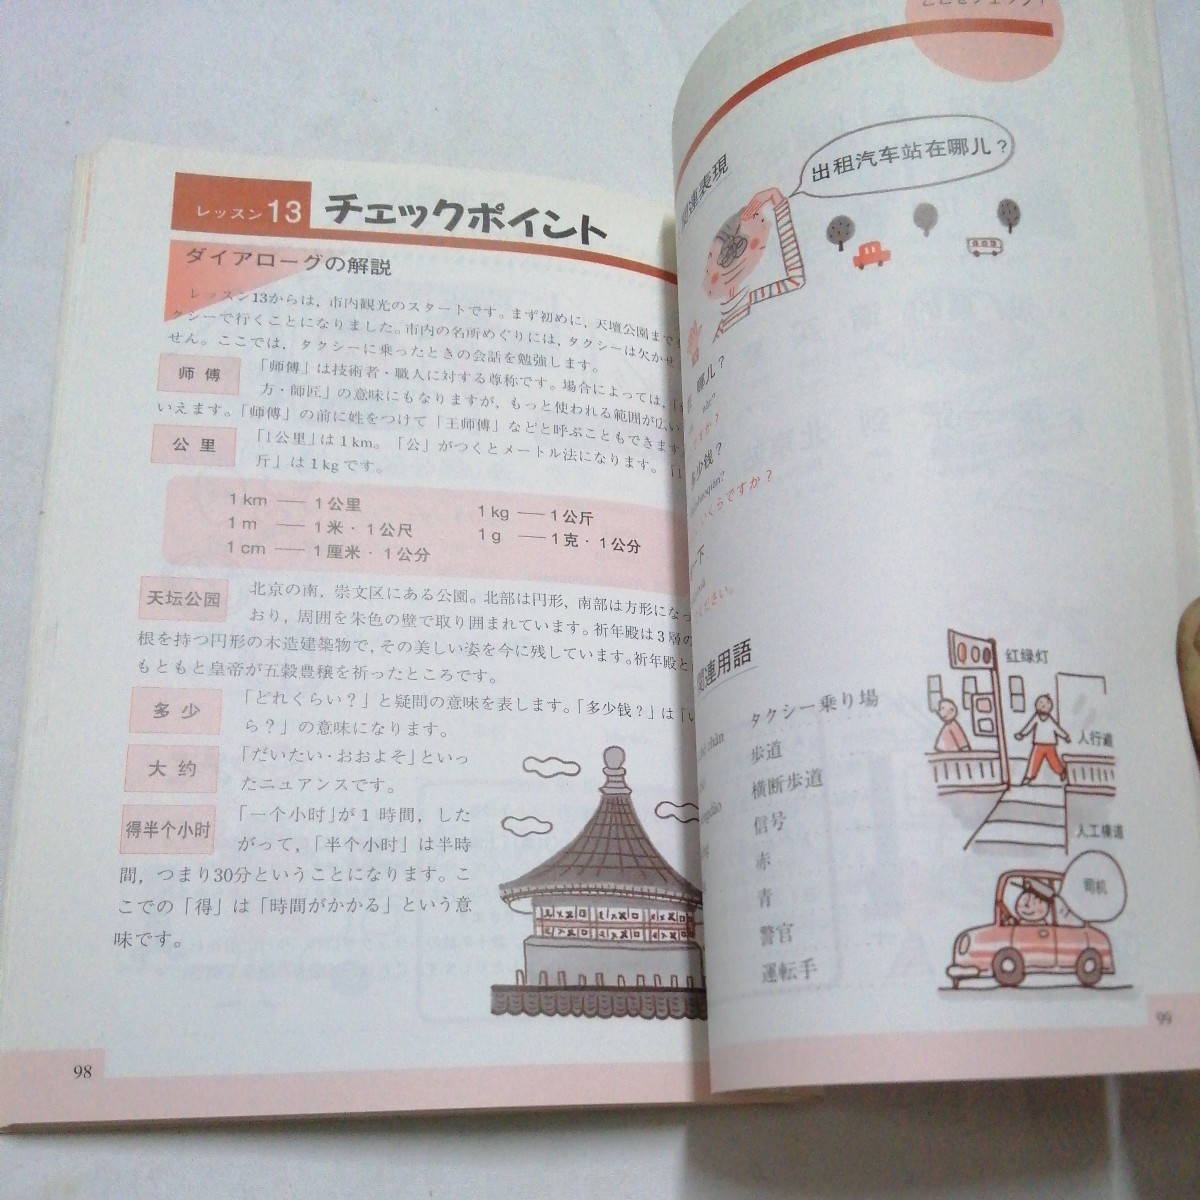 レッスン13 チェックポイント
ダイアローグの解説
レッスン13からは，市内観光のスタートです。まず初めに，天壇公園まで
クシーで行くことになりました。市内の名所めぐりには，タクシーは欠かせ
せん。ここでは，タクシーに乗ったときの会話を勉強します。
师傅
「师傅」は技術者・職人に対する尊称です。場合によっては，「
方・師匠」の意味にもなりますが，もっと使われる範囲が広い
いえます。「师傅」の前に姓をつけて「王师傅」などと呼ぶこともできます
公里
「1公里」は1km。「公」がつくとメートル法になります。「1
斤」は1kgです。
1km ── 1公里
1m ── 1米・1公尺
1cm ── 1厘米・1公分
1kg ── 1公斤
1g ── 1克・1公分
天坛公园
北京の南，崇文区にある公園。北部は円形，南部は方形になっ
おり，周囲を朱色の壁で取り囲まれています。祈年殿は3層の
根を持つ円形の木造建築物で，その美しい姿を今に残しています。祈年殿と
もともと皇帝が五穀豊穣を祈ったところです。
多少
「どれくらい？」と疑問の意味を表します。「多少钱？」は「い
ら？」の意味になります。
大约
「だいたい・おおよそ」といっ
たニュアンスです。
得半个小时
「一个小时」が1時間，した
がって，「半个小时」は半時
間，つまり30分ということになります。こ
こでの「得」は「時間がかかる」という意
味です。
98
関連表現
出租汽车站在哪儿？
哪儿？
ですか？
多少钱？
いくらですか？
一下
ください。
関連用語
タクシー乗り場
歩道
横断歩道
信号
赤
青
警官
運転手
红绿灯
人行道
人工横道
司机
99